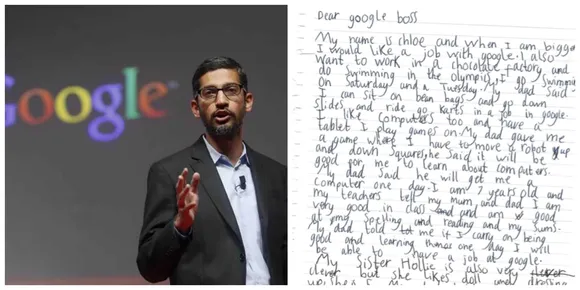 Google
Dear google boss
My name is chloe and when I am bigger
I would like a job with google. I also
want to work in a chocolate factory and
do swimming in the olympics. I go swimming
on Saturday and a Tuesday. My dad said
I can sit on bean bags and go down
slides and ride go karts in a job in google.
I like computers too and have a
tablet I play games on. My dad gave me
a game where I have to move a robot up
and down squares, he said it will be
good for me to learn about computers.
My dad said he will get me a
computer one day. I am 7 years old and
my teachers tell my mum and dad I am
very good in class and am good
at my spelling and reading and my sums.
My dad told me if I carry on being
good and learning then one day I will
be able to have a job at google.
My sister Hollie is also very
clever but she likes doll and dressing